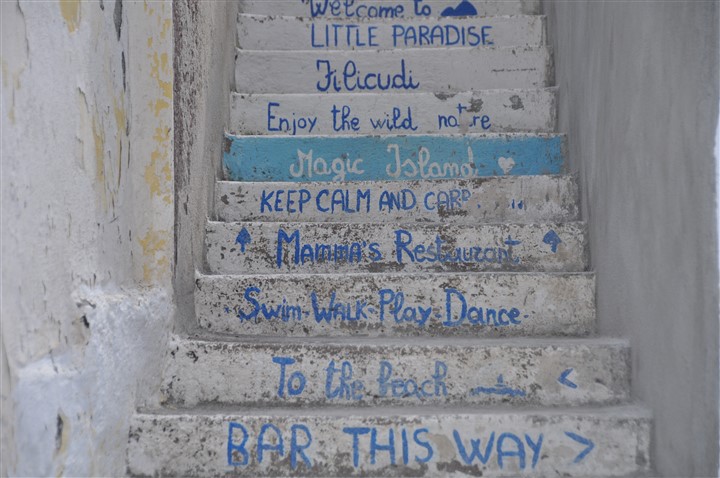 Welcome to
LITTLE PARADISE
Filicudi
Enjoy the wild nature
Magic Island
KEEP CALM AND
Mamma's Restaurant
Swim-Walk-Play-Dance
To the beach <
BAR THIS WAY >